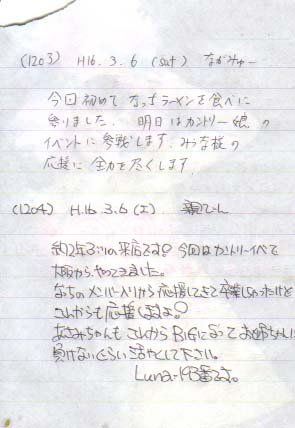 (1203) H16.3.6 (sat) ながみゅー
今回初めて なっちラーメンを食べに
参りました。明日はカントリー娘の
イベントに参戦します。みうな様の
応援に全力を尽くします。
(1204) H.16.3.6(土)
約2年ぶりの来店です♂今回はカントリーイベで
大阪からやってきました。
なっちのメンバー入りから応援してきて卒業しちゃったけど
これからも応援しますよ♂
あさみちゃんも これから BIGになって お姉ちゃんに
負けないくらい 活やくして下さい。
Luna-193番です。